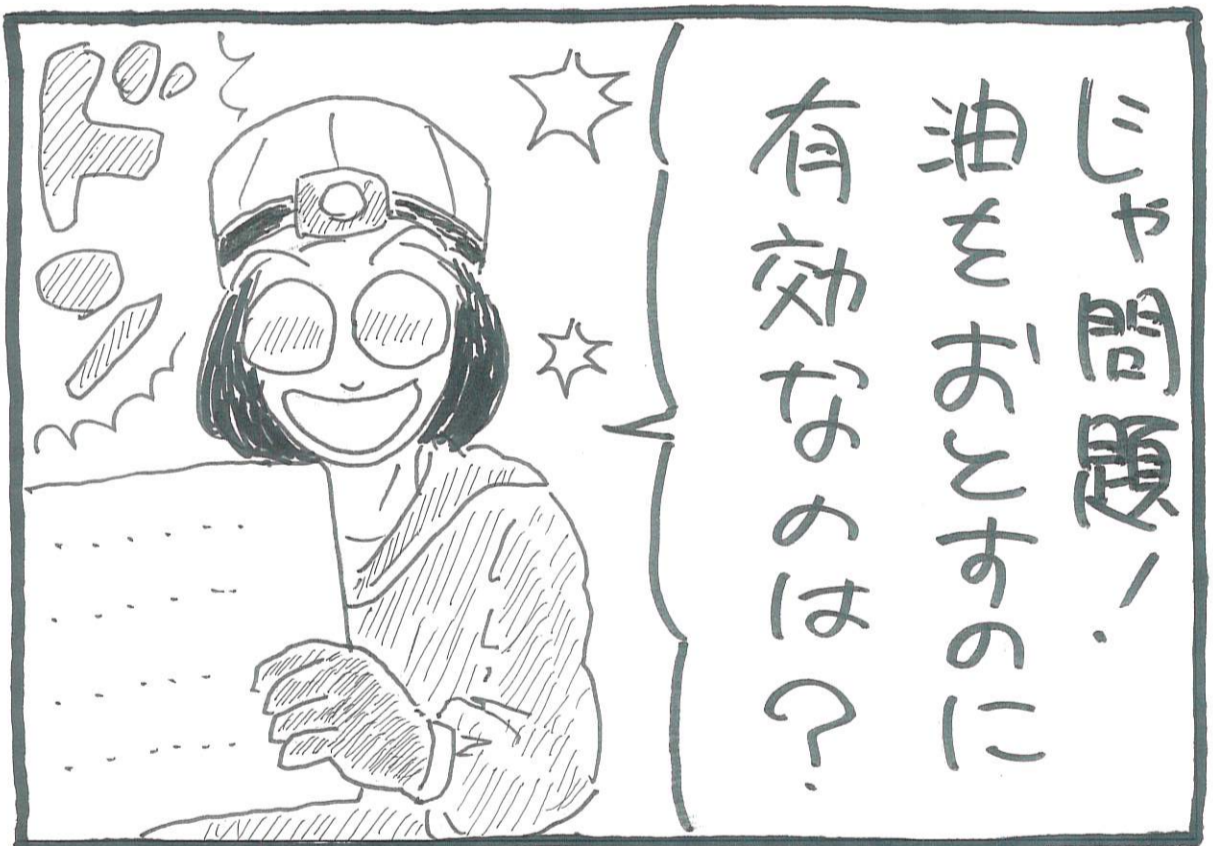 じゃ問題!
油をおとすのに
有効なのは?
ドーン